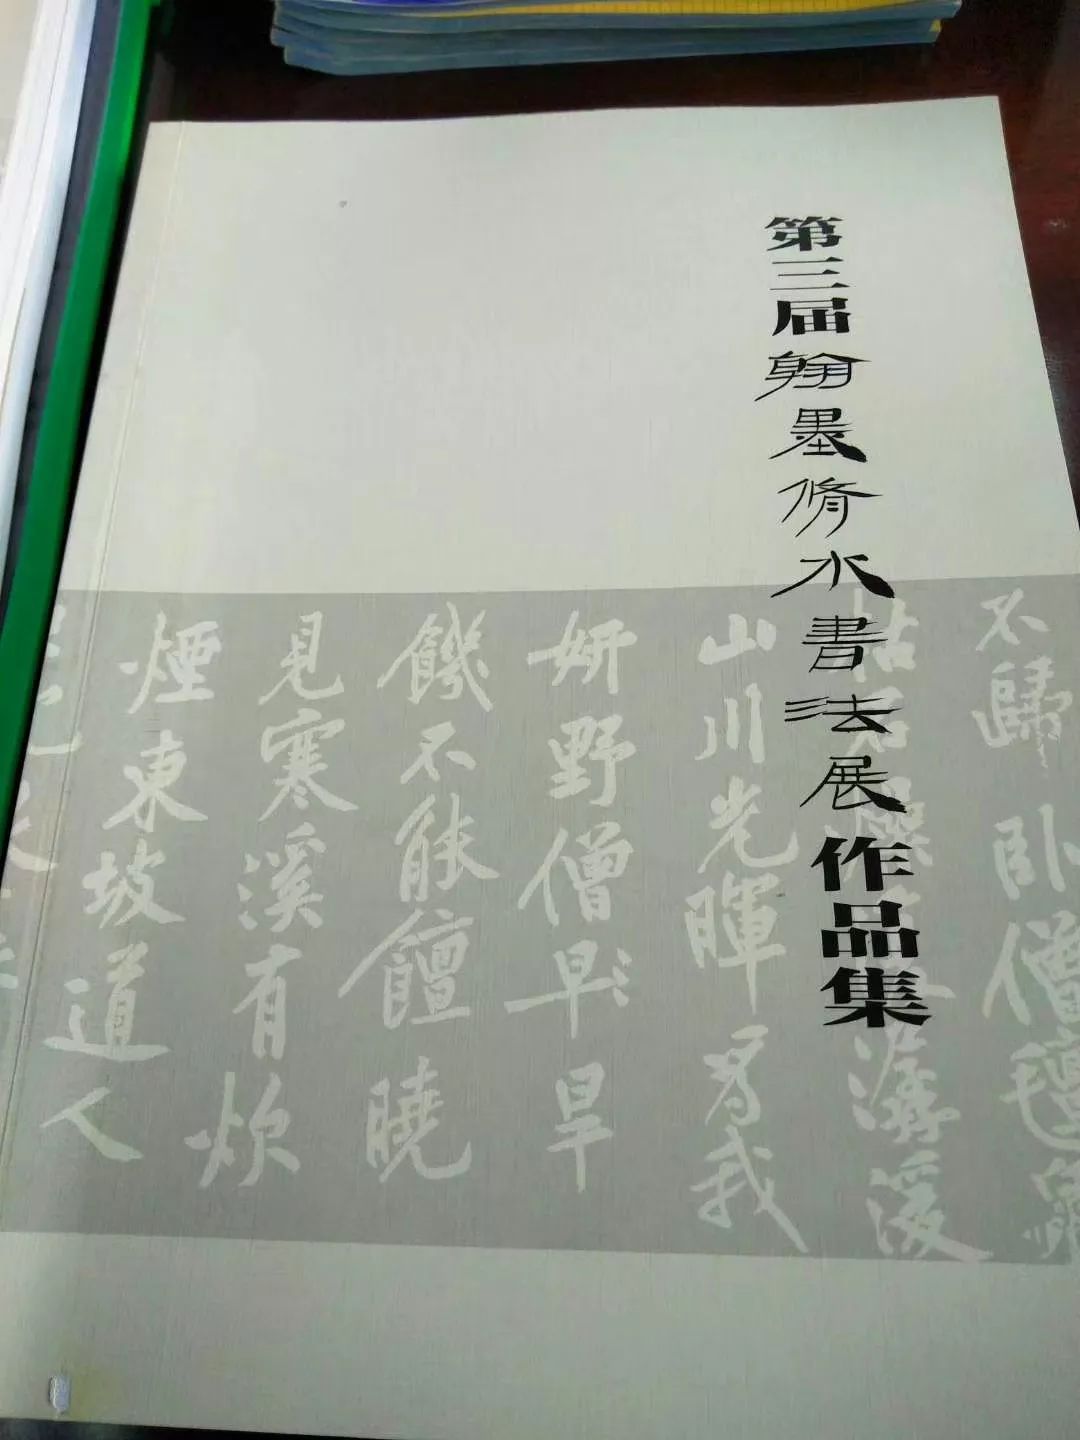 第三届翰墨脩水書法展作品集
不歸卧僧氊
潺湲
山川光暉為我
妍野僧早旱
饑不能饘曉
見寒溪有炊
煙東坡道人